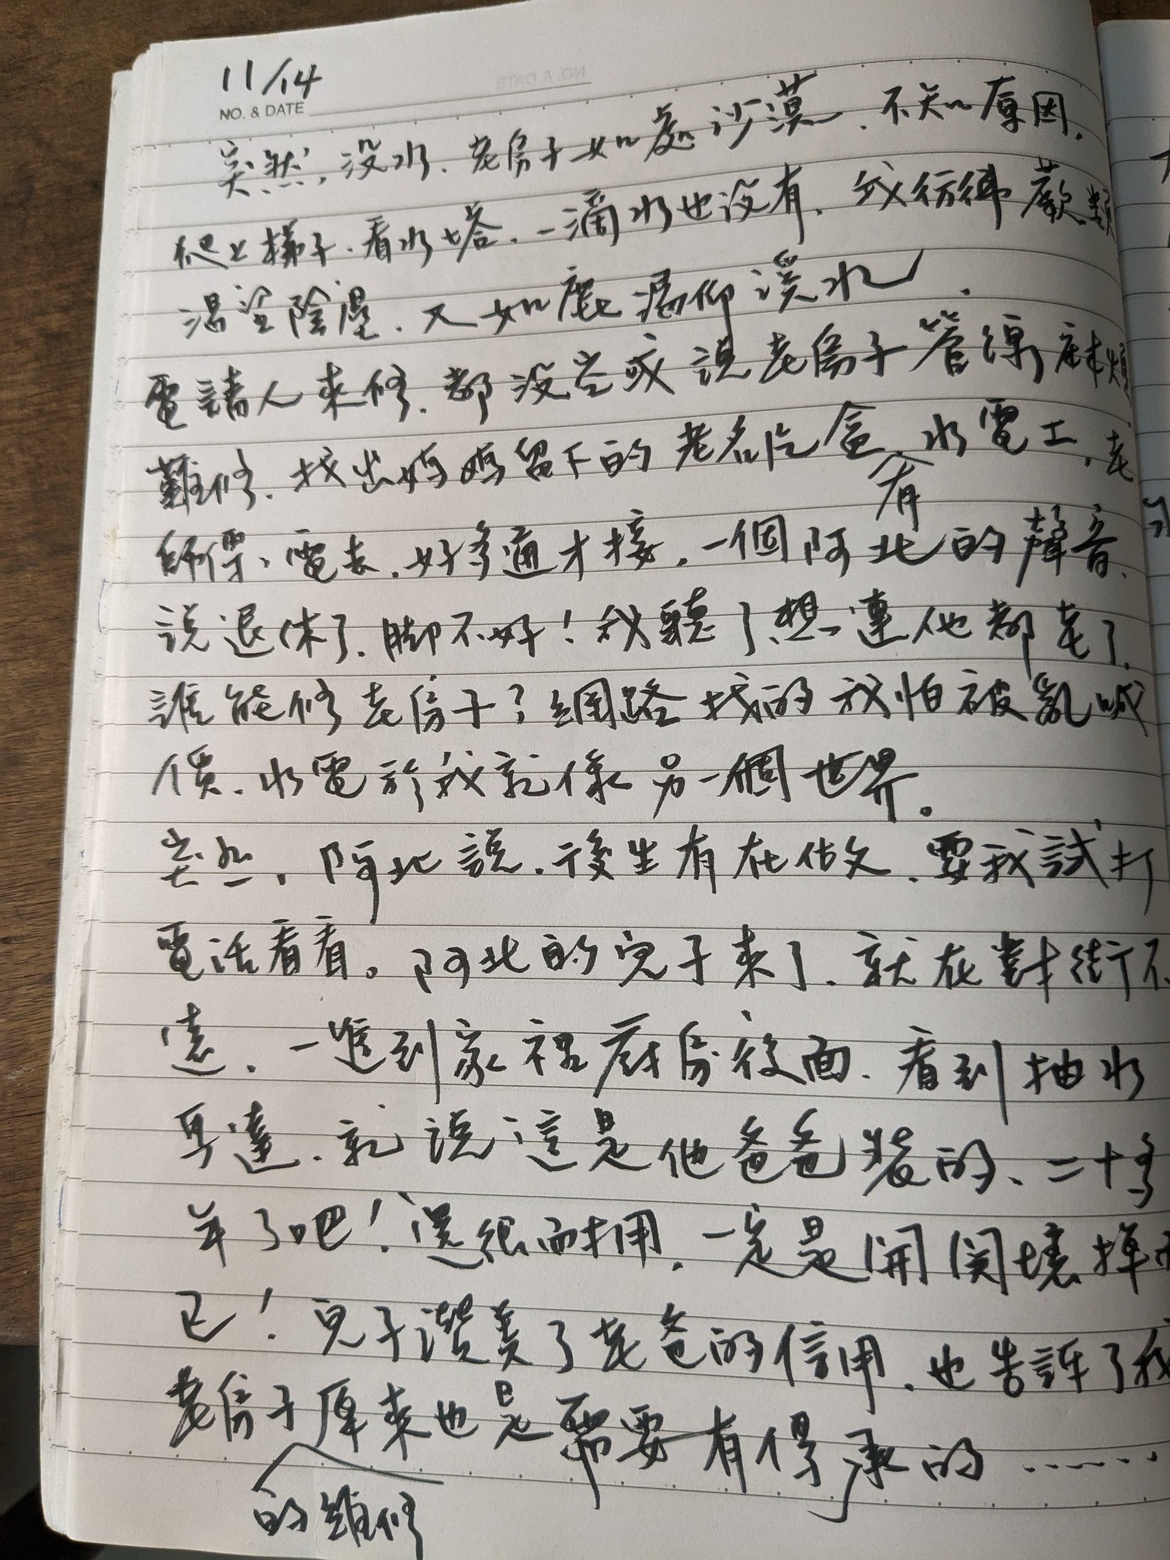 11/14
NO. & DATE
突然，沒水．老房子如處沙漠．不知原因．
爬上樓子．看水塔．一滴水也沒有．我彷彿
渴望陰涼．又如鹿渴仰溪水．
電請人來修．都沒空或說老房子管線麻煩
難修．找出媽媽留下的老名片盒有水電工．老
師傅、電去．好多通才接．一個阿北的聲音．
說退休了．腳不好！我聽了想連他都老了．
誰能修老房子？網路找的我怕被亂喊
價．水電於我就像另一個世界。
突然，阿北說．後生有在做．要我試打
電話看看。阿北的兒子來了．就在對街不
遠．一進到家裡廚房後面．看到抽水
馬達．就說這是他爸爸裝的、二十多
年了吧！還很耐用．一定是開關壞掉而
已！兒子讚美了老爸的信用．也告訴了我
老房子的維修原來也是需要有傳承的……